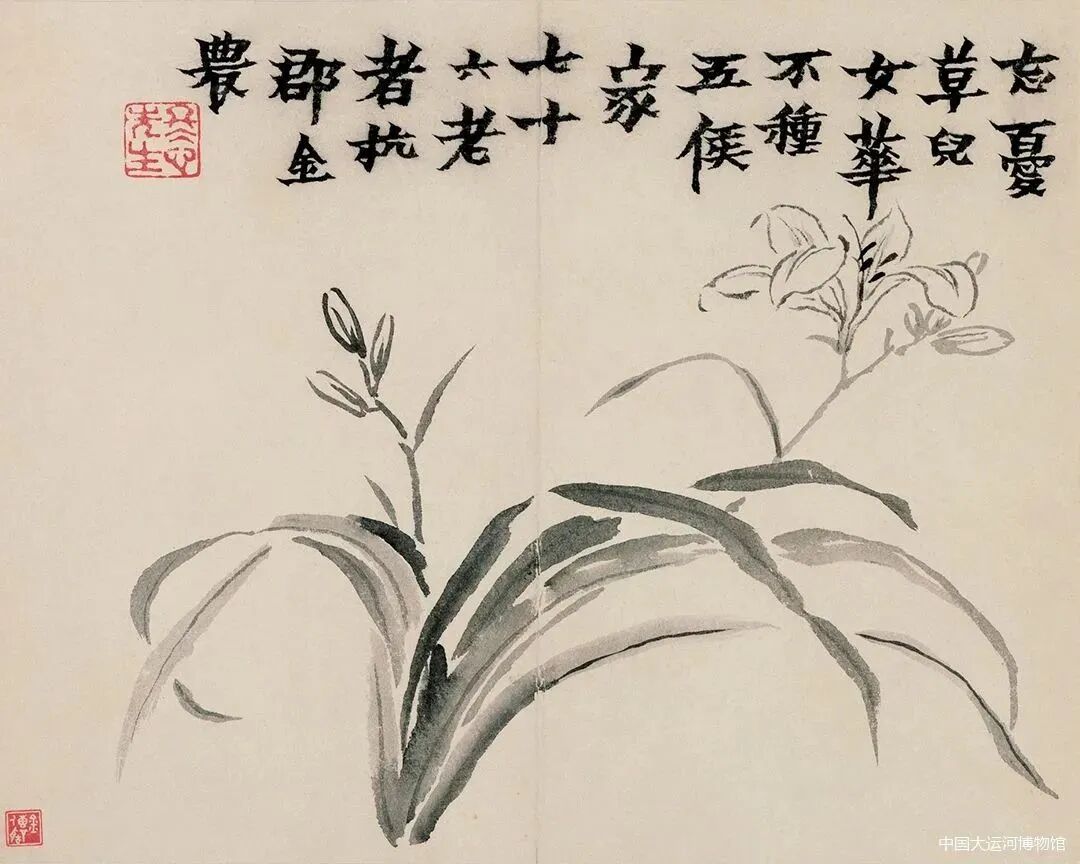 忘憂
草兒
女華
不種
五侯
家
七十
六老
者杭
郡金
農
冬心
先生
中国大运河博物馆